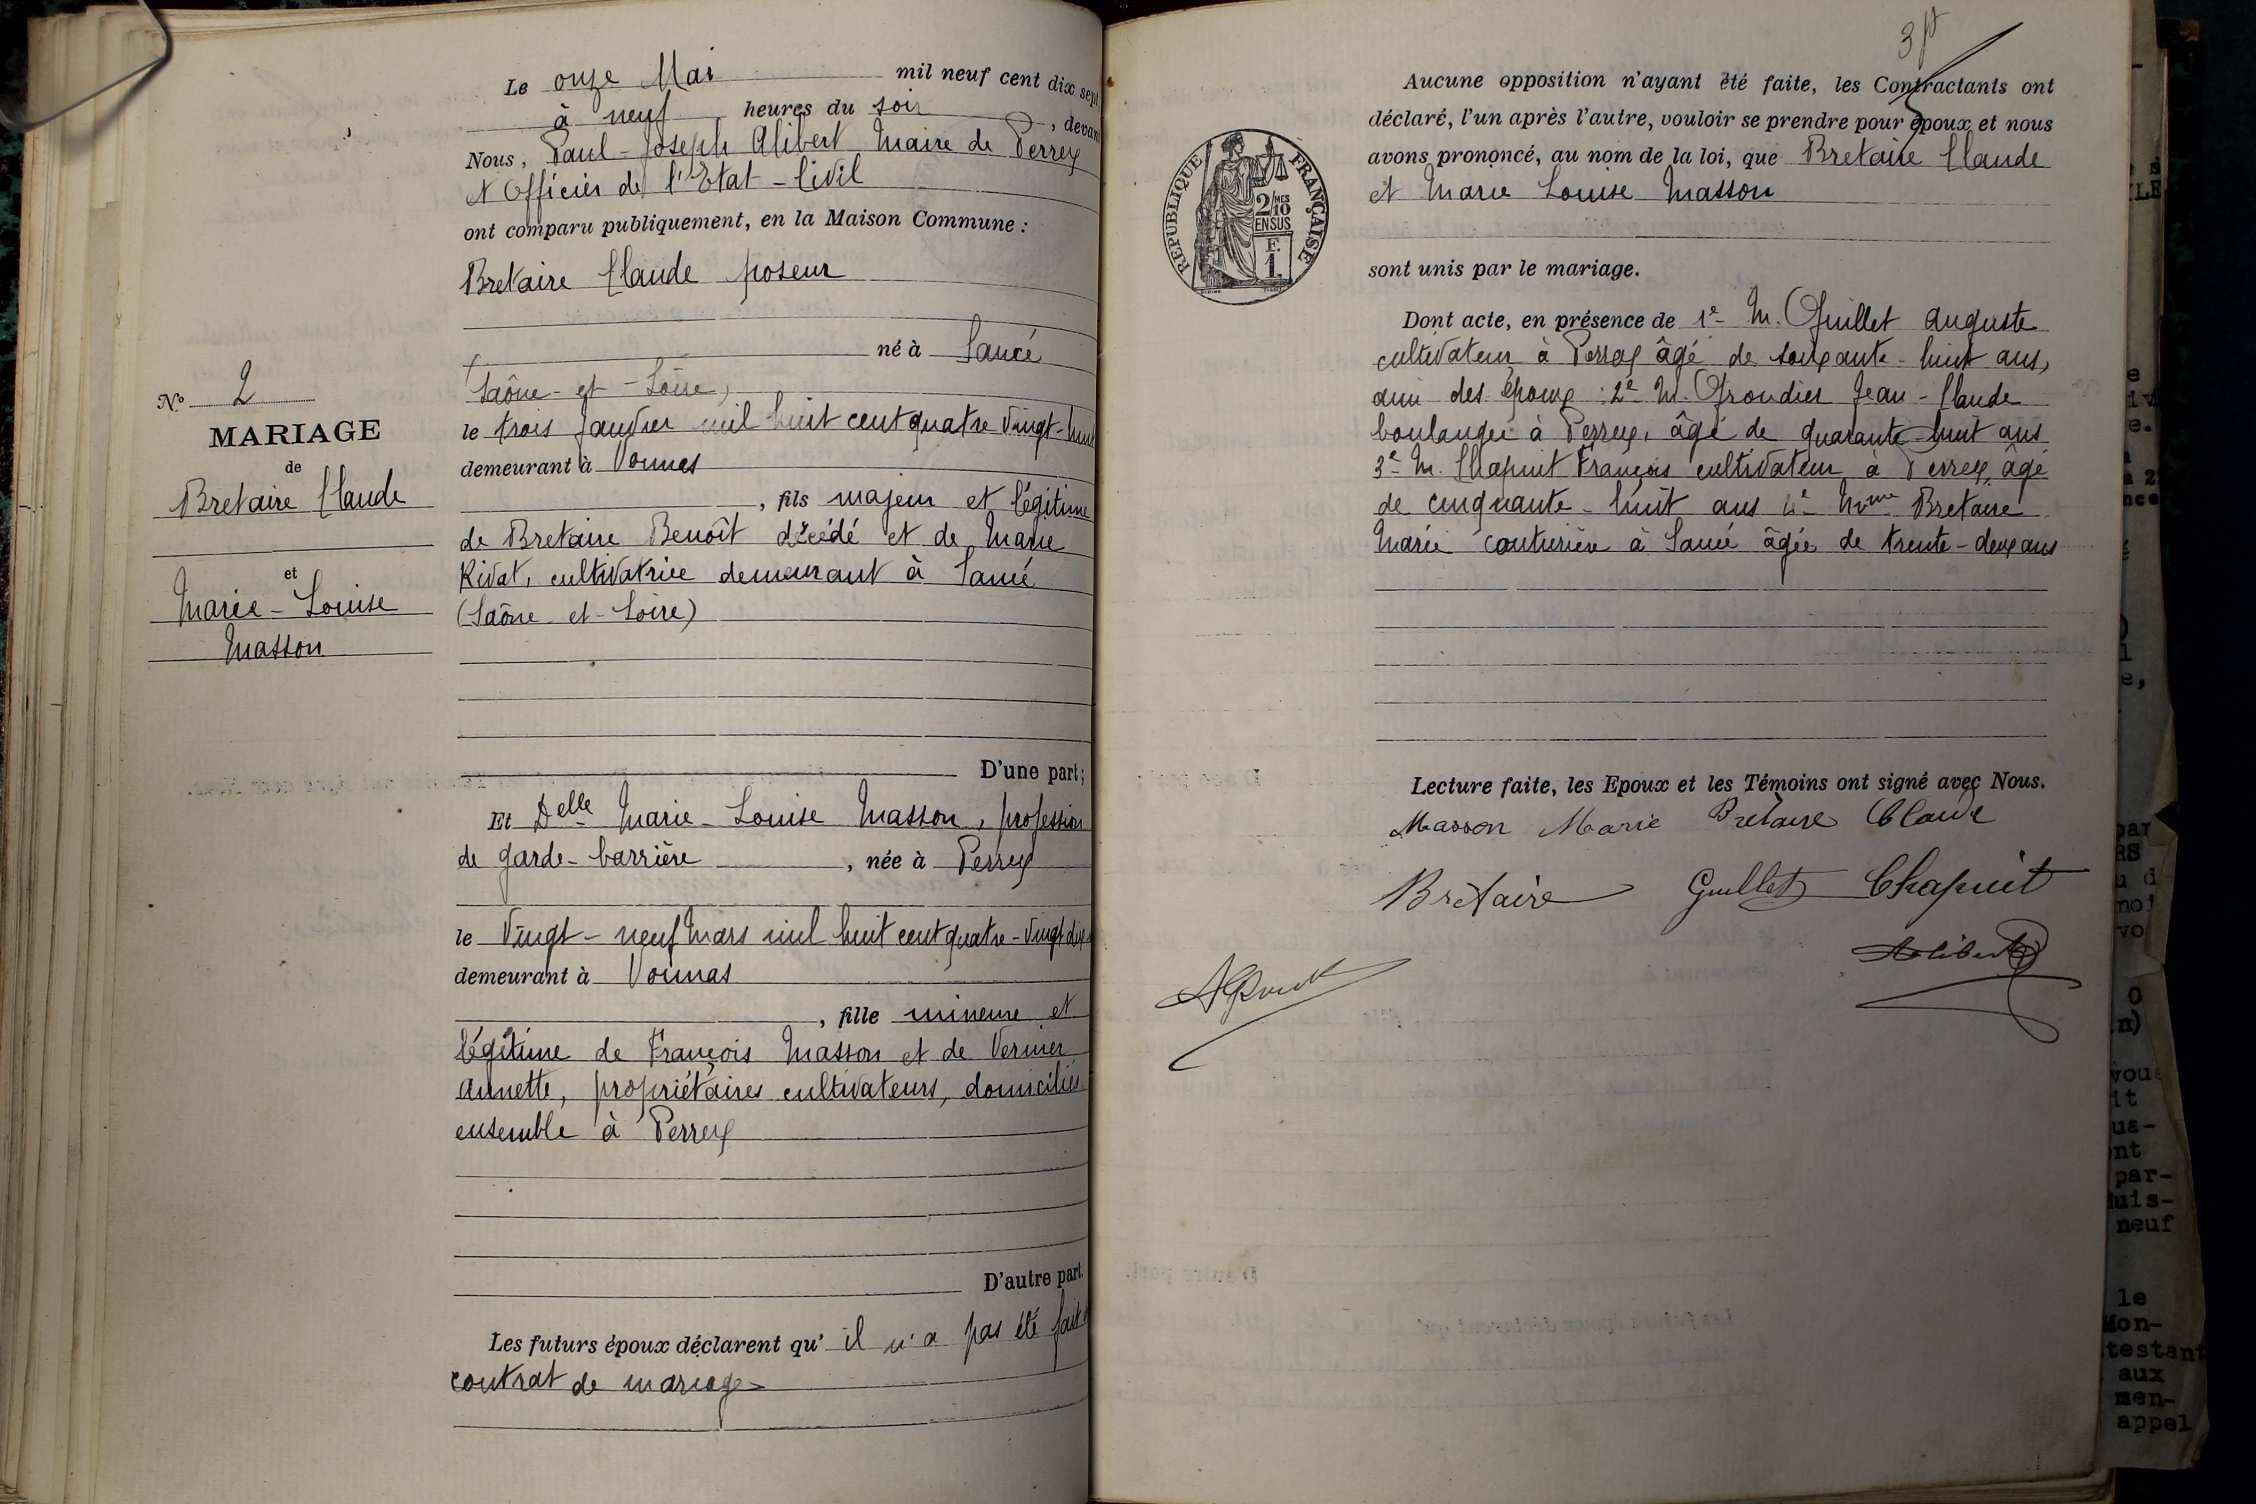 Le onze Mai mil neuf cent dix sept
à neuf heures du soir, devant
Nous, Paul-Joseph Alibert Maire de Perrex
et Officier de l'Etat-Civil
ont comparu publiquement, en la Maison Commune :
Bretaire Claude poseur
né à Sancé
(Saône-et-Loire)
le trois Janvier mil huit cent quatre vingt-huit
demeurant à Vonnas
, fils majeur et légitime
de Bretaire Benoît décédé et de Marie
Rivat, cultivatrice demeurant à Sancé
(Saône-et-Loire)
D'une part;
Et Delle Marie-Louise Masson, profession
de garde-barrière, née à Perrex
le Vingt-neuf Mars mil huit cent quatre-Vingt dix
demeurant à Vonnas
, fille mineure et
légitime de François Masson et de Vernier
Annette, propriétaires cultivateurs, domiciliés
ensemble à Perrex
D'autre part.
Les futurs époux déclarent qu'il n'a pas été fait
contrat de mariage
No 2
MARIAGE
de
Bretaire Claude
et
Marie-Louise
Masson
Aucune opposition n'ayant été faite, les Contractants ont
déclaré, l'un après l'autre, vouloir se prendre pour époux et nous
avons prononcé, au nom de la loi, que Bretaire Claude
et Marie Louise Masson
sont unis par le mariage.
Dont acte, en présence de 1e M. Guillet Auguste
cultivateur à Perrex âgé de soixante-huit ans,
ami des époux : 2e M. Grondier Jean-Claude
boulanger à Perrex, âgé de quarante-huit ans
3e M. Chapuit François cultivateur à Perrex, âgé
de cinquante-huit ans 4e Mme Bretaire
Marie couturière à Sancé âgée de trente-deux ans
Lecture faite, les Epoux et les Témoins ont signé avec Nous.
Masson Marie Bretaire Claude
Bretaire Guillet Chapuit
Alibert
RÉPUBLIQUE FRANÇAISE
2/10MES
EN SUS
F.
1